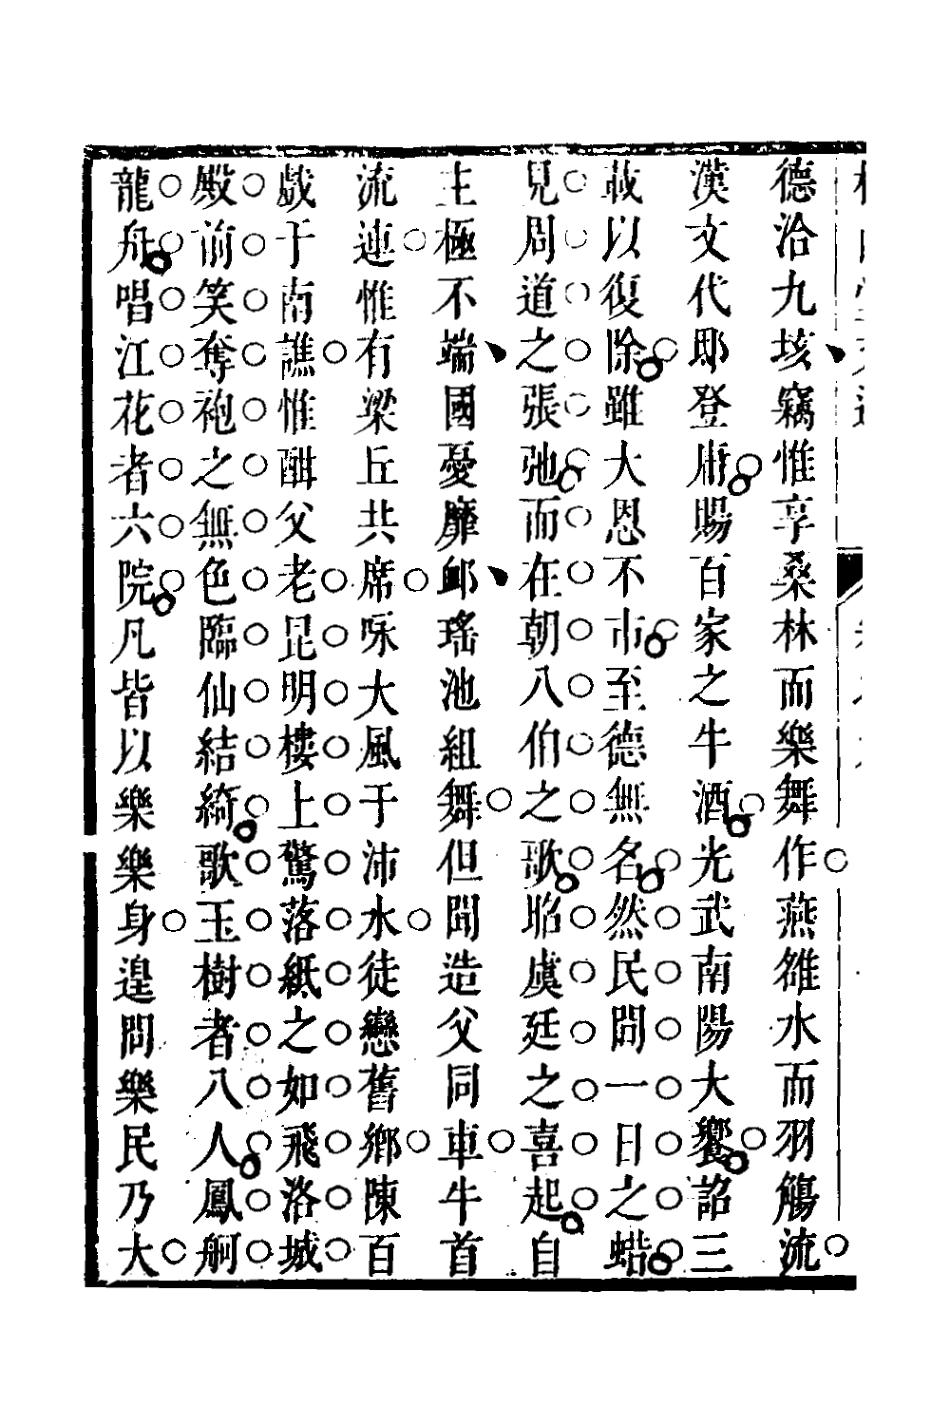 德洽九垓竊惟享桑林而樂舞作燕雒水而羽觴流
漢文代邸登庸賜百家之牛酒光武南陽大饗詔三
載以復除雖大恩不市至德無名然民間一日之蜡
見周道之張弛而在朝八伯之歌昭虞廷之喜起自
主極不端國憂靡卹瑤池組舞但聞造父同車牛首
流連惟有梁丘共席咏大風于沛水徒戀舊鄉陳百
戲于南譙惟酣父老昆明樓上驚落紙之如飛洛城
殿前笑奪袍之無色臨仙結綺歌玉樹者八人鳳舸
龍舟唱江花者六院凡皆以樂樂身遑問樂民乃大